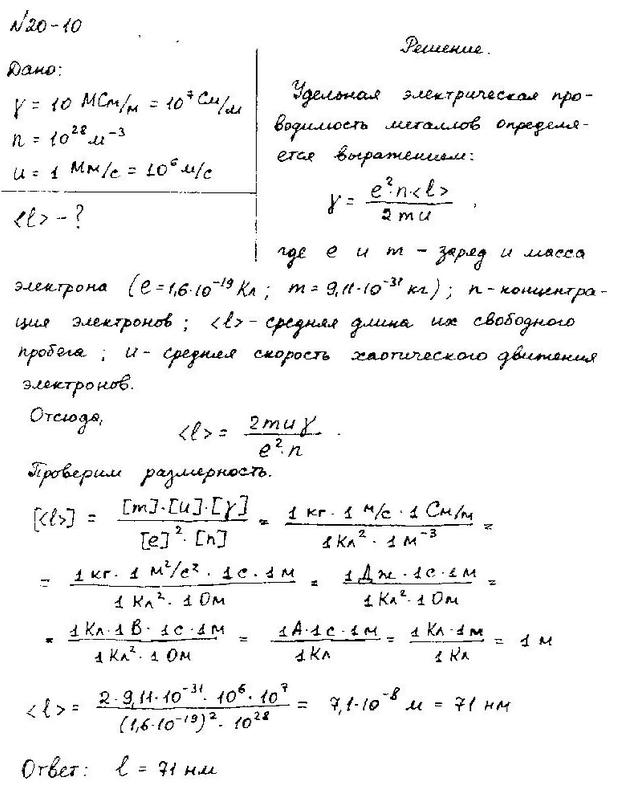 №20-10
Дано:
γ = 10 МСм/м = 10⁷ См/м
n = 10²⁸ м⁻³
u = 1 Мм/с = 10⁶ м/с
<l> - ?
Решение.
Удельная электрическая про-
водимость металлов определя-
ется выражением:
γ = e²·n·<l> / 2mu ,
где e и m - заряд и масса
электрона (e = 1,6·10⁻¹⁹ Кл ; m = 9,11·10⁻³¹ кг) ; n - концентра-
ция электронов ; <l> - средняя длина их свободного
пробега ; u - средняя скорость хаотического движения
электронов.
Отсюда, <l> = 2muγ / e²·n .
Проверим размерность.
[<l>] = [m]·[u]·[γ] / [e]²·[n] = 1 кг · 1 м/с · 1 См/м / 1 Кл² · 1 м⁻³ =
= 1 кг · 1 м²/с² · 1с · 1м / 1 Кл² · 1 Ом = 1 Дж · 1с · 1м / 1 Кл² · 1 Ом =
= 1 Кл · 1 В · 1с · 1м / 1 Кл² · 1 Ом = 1А·1с·1м / 1 Кл = 1 Кл · 1м / 1 Кл = 1 м
<l> = 2·9,11·10⁻³¹·10⁶·10⁷ / (1,6·10⁻¹⁹)²·10²⁸ = 7,1·10⁻⁸ м = 71 нм
Ответ: l = 71 нм